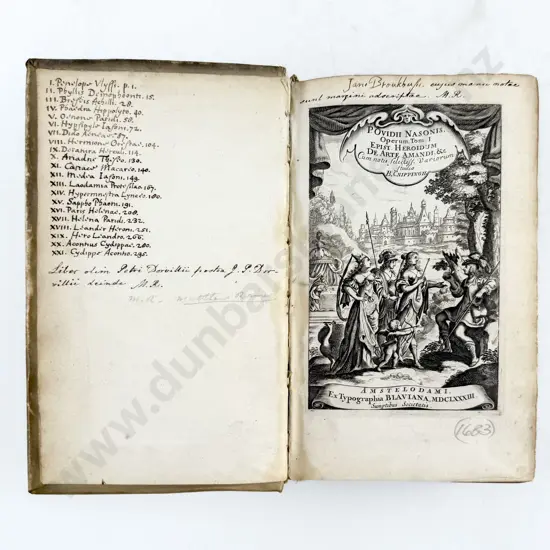 I. Penelope Ulyssi. p. 1.
II. Phyllis Demophoonti. 15.
III. Briseis Achilli. 28.
IV. Phaedra Hippolyto. 40.
V. Oenone Paridi. 50.
VI. Hypsipyle Iasoni. 72.
VII. Dido Aeneae. 87.
VIII. Hermione Oresti. 104.
IX. Deianira Herculi. 114.
X. Ariadne Theseo. 130.
XI. Canace Macareo. 140.
XII. Medea Iasoni. 149.
XIII. Laodamia Protesilao. 167.
XIV. Hypermnestra Lynceo. 180.
XV. Sappho Phaoni. 191.
XVI. Paris Helenae. 208.
XVII. Helena Paridi. 232.
XVIII. Leander Heroni. 251.
XIX. Hero Leandro. 266.
XX. Acontius Cydippae. 280.
XXI. Cydippe Acontio. 295.
Liber olim Petri Dorvillii postea J. P. Dor-
villii deinde M. R.
M. R.
Jani Broukhusi. cujus manu notae
sunt margini adscriptae. M. R.
P. OVIDII NASONIS.
Operum, Tom. I
EPIST. HEROIDUM
DE ARTE AMANDI, &c
Cum notis Selectiss. Variorum
Studio
B. CNIPPINGII
AMSTELODAMI,
Ex Typographia BLAVIANA, MDCLXXXIII.
Sumptibus Societatis.
1683
www.dunbarsloane.co.nz